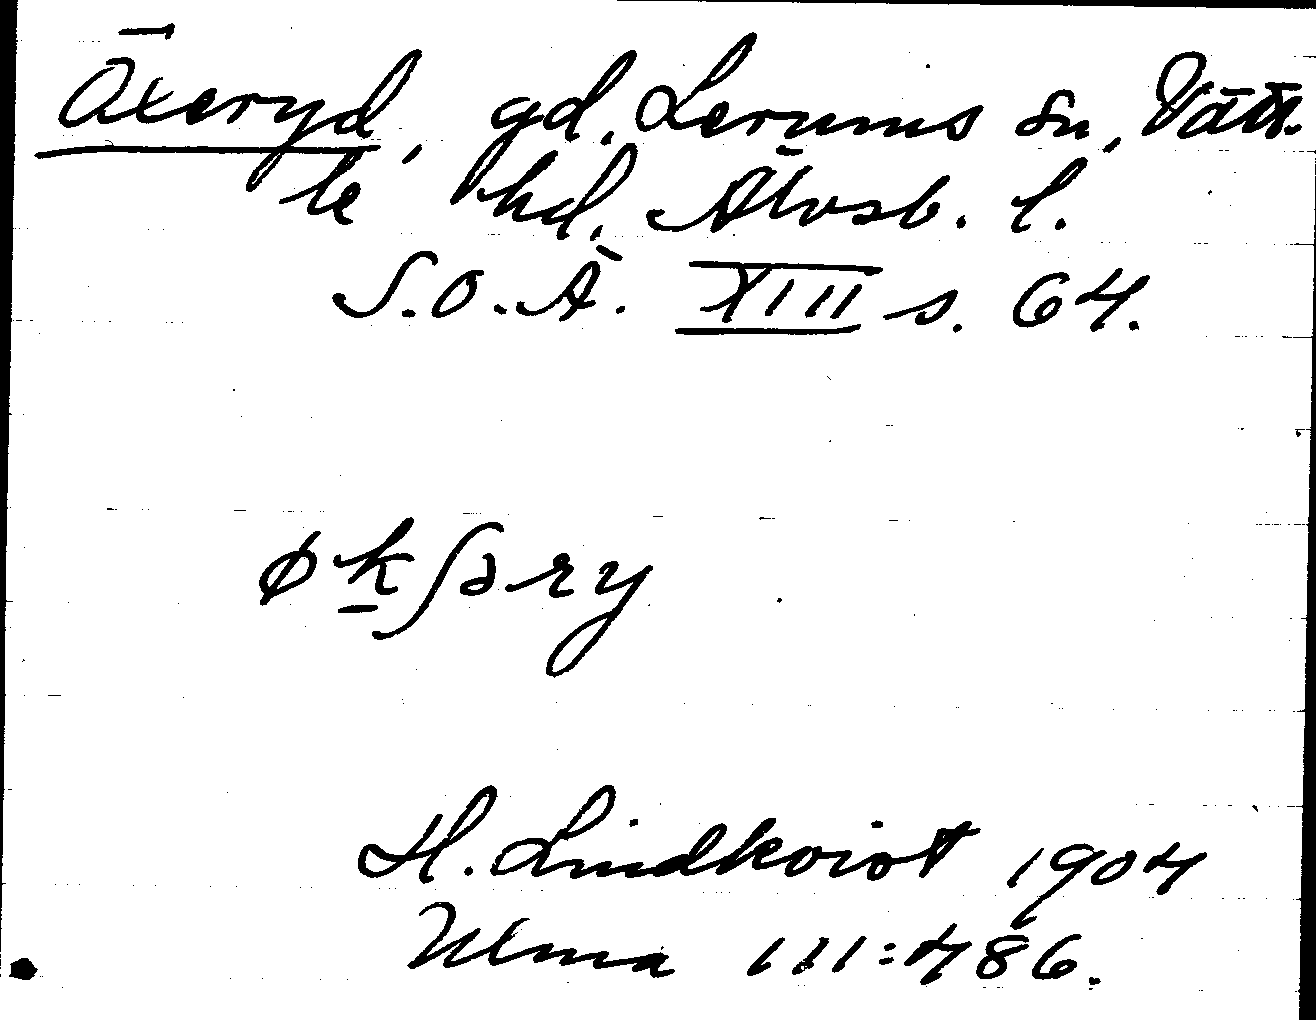 Öxeryd, gd. Lerums sn, Vätt-
le hd, Älvsb. l.
S.O.Ä. XIII s. 64.
økʃəry
H. Lindkvist 1904
Ulma 111:486.